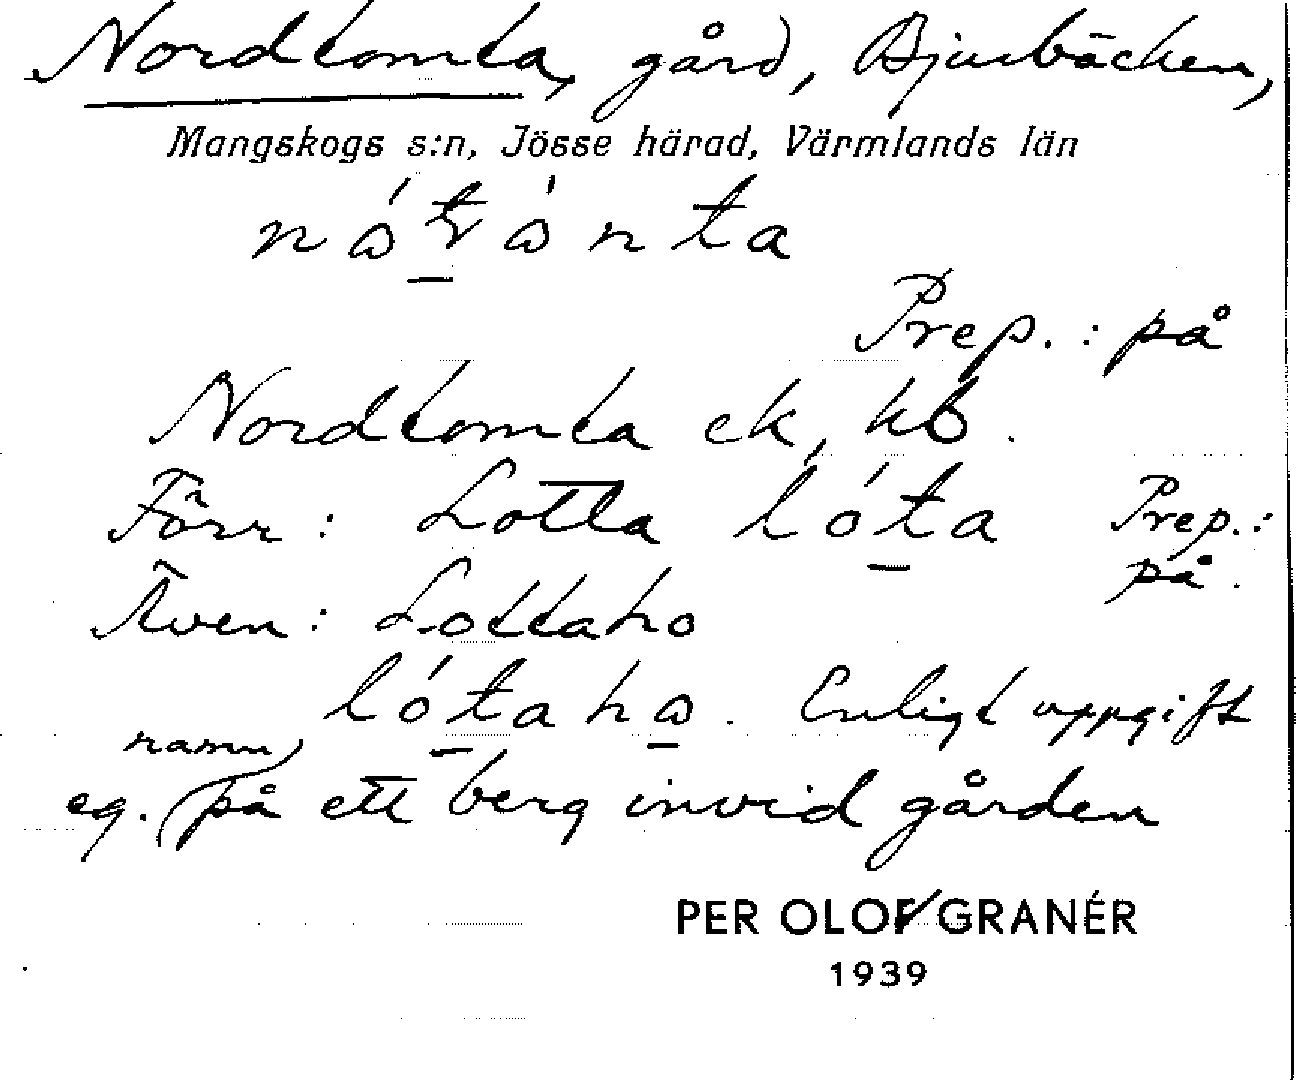 Nordtomta, gård, Bjurbäcken,
Mangskogs s:n, Jösse härad, Värmlands län
Prep.: på
Nordtomta ek, kb.
Förr: Lotta lóta Prep.:
på.
Även: Lottaho
lótahɷ. Enligt uppgift
namn
eg. på ett berg invid gården
PER OLOF GRANÉR
1939